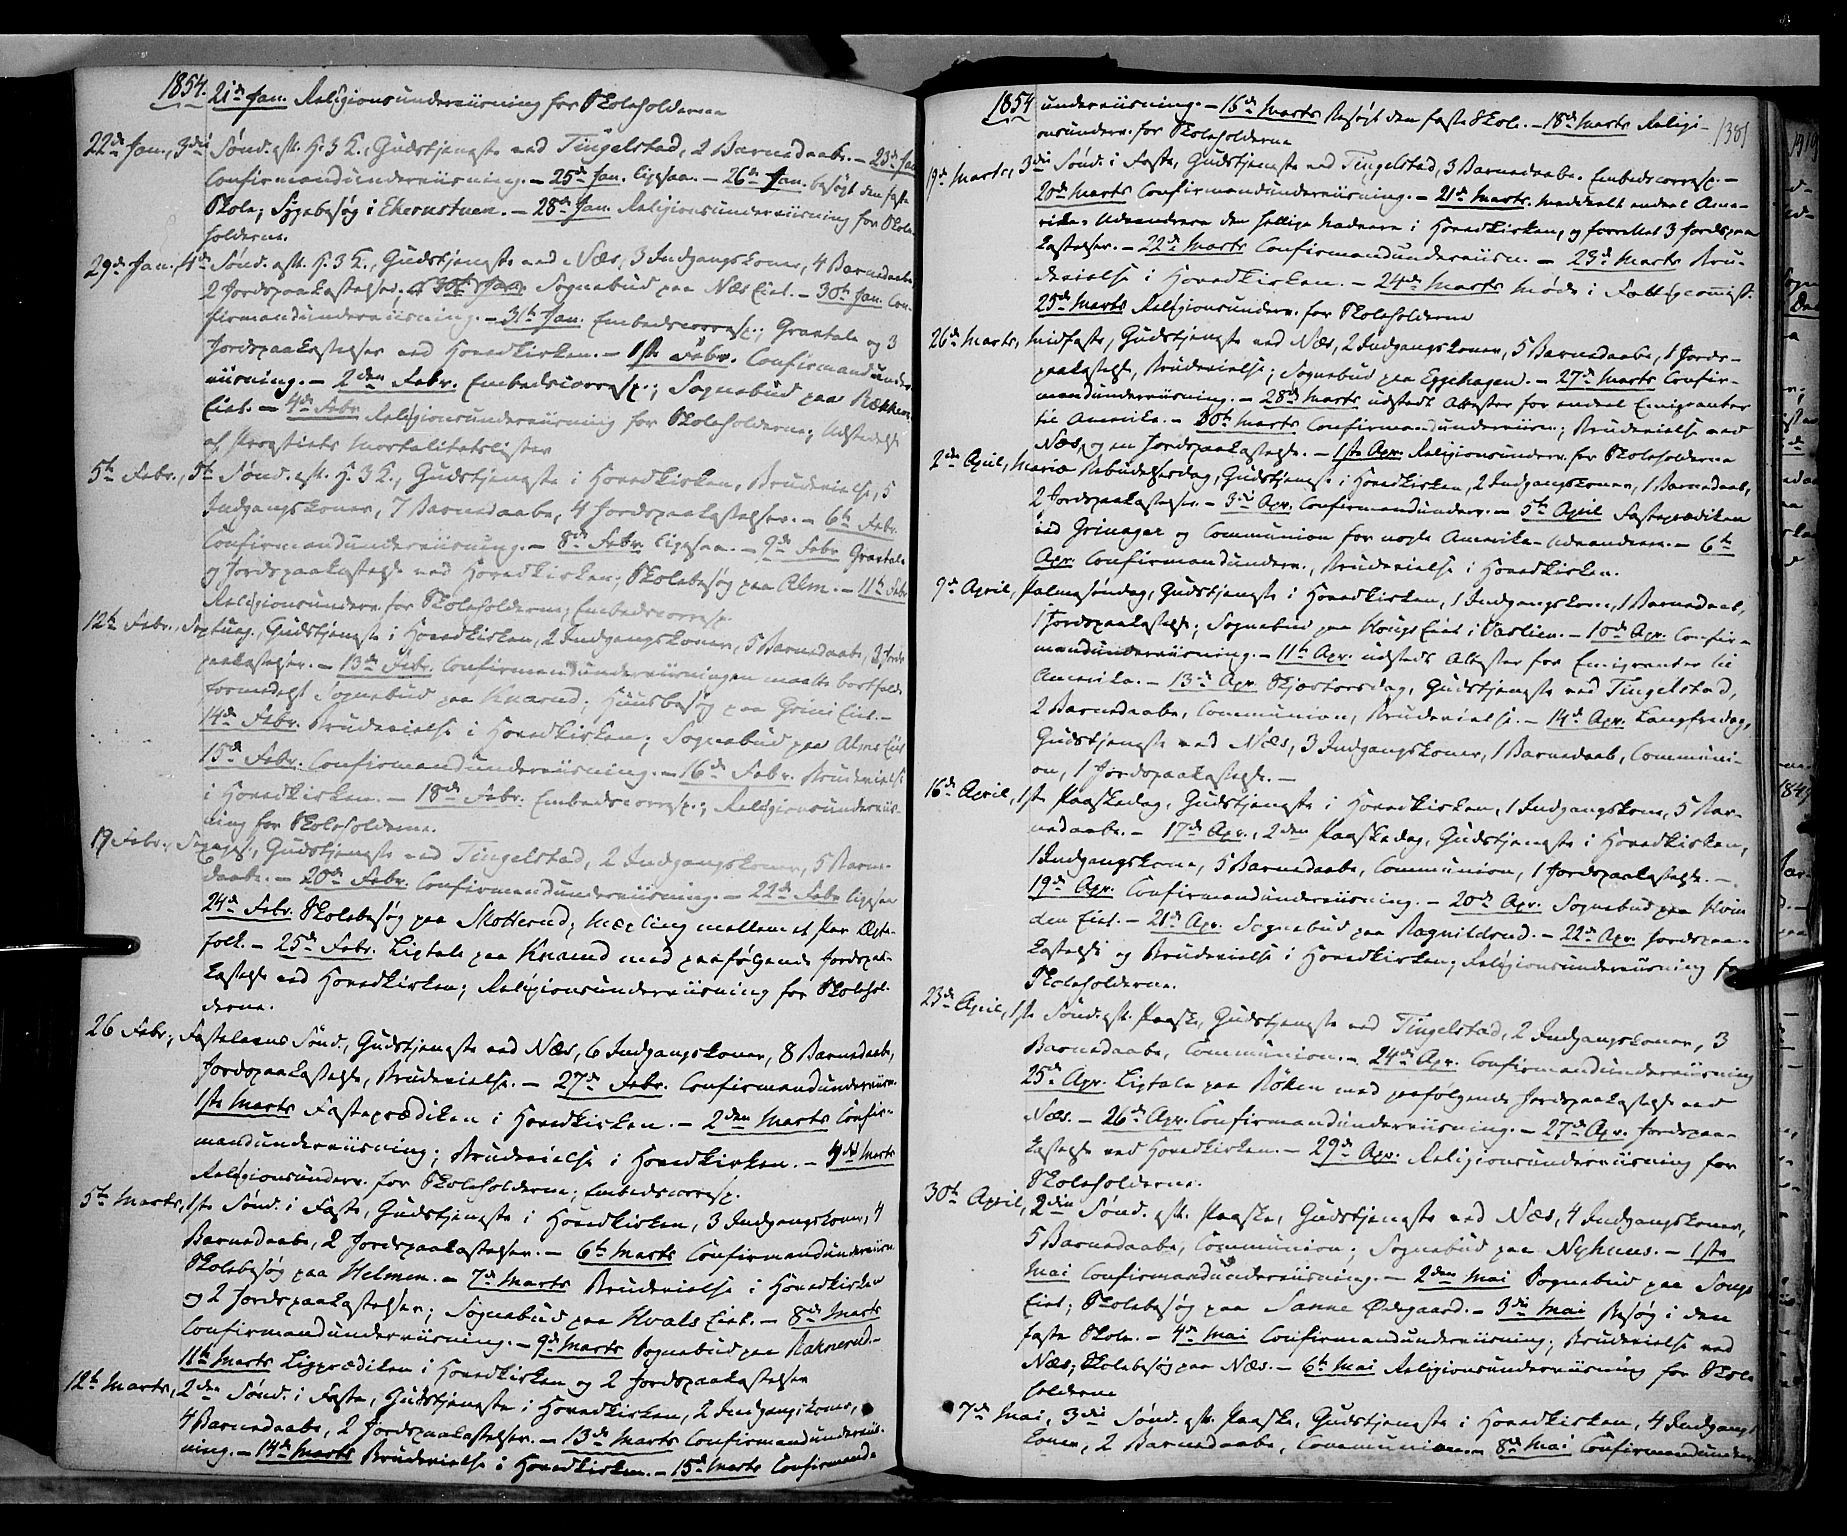 1854. 21de Jan. Religionsunderviisning for Skoleholderne
22de Jan., 3die Sønd. eft. H. 3 K., Gudstjeneste ved Tingelstad, 2 Barnedaabe. – 23de Jan
Confirmandunderviisning. – 25de Jan. Ligpræ. – 26de Jan. besøgt den faste
Skole; Sygebesøg i Ekernstuen. – 28de Jan. Religionsunderviisning for Skole-
holderne.
29de Jan., 4de Sønd. eft. H. 3 K., Gudstjeneste ved Næs, 3 Indgangskoner, 4 Barnedaabe
2 Jordspaakastelser, Sognebud paa Næs Eiet. – 30te Jan. Con-
firmandunderviisning. – 31te Jan. Embedscorresp.; Gravtale og 3
Jordspaakastelser ved Hovedkirken. – 1ste Febr. Confirmandunder-
viisning. – 2den Febr. Embedscorresp.; Sognebud paa Rækken
Eiet. – 4de Febr. Religionsunderviisning for Skoleholderne; Udstedelse
af Præstiets Mortalitetslister
5te Febr., 5te Sønd. eft. H. 3 K., Gudstjeneste i Hovedkirken, Brudevielse, 5
Indgangskoner, 7 Barnedaabe, 4 Jordspaakastelser. – 6te Febr.
Confirmandunderviisning. – 8de Febr. – 9de Febr Gravtale
og Jordspaakastelse ved Hovedkirken; Skolebesøg paa Alm. – 11te Febr
Religionsunderv. for Skoleholderne; Embedscorresp.
12te Febr., Septuag., Gudstjeneste i Hovedkirken, 2 Indgangskoner, 5 Barnedaabe, 3 Jords-
paakastelser. – 13de Febr. Confirmandunderviisningen maatte bortfalde
formedelst Sognebud paa Knarud; Huusbesøg paa Grini Eiet. –
14de Febr. Brudevielse i Hovedkirken; Sognebud paa Alms Eiet
15de Febr. Confirmandunderviisning. – 16de Febr. Brudevielse
i Hovedkirken. – 18de Febr. Embedscorresp.; Religionsunderviis-
ning for Skoleholderne.
19 Febr., Sexages., Gudstjeneste ved Tingelstad, 2 Indgangskoner, 5 Barne-
daabe. – 20de Febr. Confirmandunderviisning. – 22de Febr
24de Febr. Skolebesøg paa Slotterud; Mægling mellem et Par Ægte-
folk. – 25de Febr. Ligtale paa Knarud med paafølgende Jordspaa-
kastelse ved Hovedkirken; Religionsunderviisning for Skolehol-
derne.
26 Febr., Fastelavns Sønd., Gudstjeneste ved Næs, 6 Indgangskoner, 8 Barnedaabe,
Jordspaakastelse, Brudevielse. – 27de Febr. Confirmandunderviisn.
1ste Marts Fasteprædiken i Hovedkirken. – 2den Marts Confir-
mandunderviisning; Brudevielse i Hovedkirken. – 4de Marts
Religionsunderv. for Skoleholderne; Embedscorresp.
5te Marts, 1ste Sønd. i Faste, Gudstjeneste i Hovedkirken, 3 Indgangskoner, 4
Barnedaabe, 2 Jordspaakastelser. – 6te Marts Confirmandunderviisn.
Skolebesøg paa Helmen. – 7de Marts Brudevielse i Hovedkirken
og 2 Jordspaakastelser; Sognebud paa Hvals Eiet. – 8de Marts
Confirmandunderviisning. – 9de Marts Sognebud paa Raknerud. –
11te Marts Ligprædiken i Hovedkirken og 2 Jordspaakastelser
12te Marts, 2den Sønd. i Faste, Gudstjeneste i Hovedkirken, 2 Indgangskoner,
4 Barnedaabe, 2 Jordspaakastelser. – 13de Marts Confirmandunderviis-
ning. – 14de Marts Brudevielse i Hovedkirken. – 15de Marts Confirmand-
1854 underviisning. – 16de Marts Besøgt den faste Skole. – 18de Marts Religi-
onsunderv. for Skoleholderne
19de Marts, 3die Sønd. i Faste, Gudstjeneste ved Tingelstad, 3 Barnedaabe. Embedscorresp. –
20de Marts Confirmandunderviisning. – 21de Marts. meddeelt endeel Ame-
rika-Udvandrere den hellige Nadvere i Hovedkirken, og forrettet 3 Jordspaa-
kastelser. – 22de Marts Confirmandunderviisn. – 23de Marts Bru-
devielse i Hovedkirken. – 24de Marts Møde i Fattigcommiss.
25de Marts Religionsunderv. for Skoleholderne
26de Marts, Midfaste, Gudstjeneste ved Næs, 2 Indgangskoner, 5 Barnedaabe, 1 Jords-
paakastelse, Brudevielse; Sognebud paa Eggehagen. – 27de Marts Confir-
mandunderviisning. – 28de Marts udstedt Attester for endeel Emigranter
til Amerika. – 30te Marts Confirmandunderviisn.; Brudevielse ved
Næs, og en Jordspaakastelse. – 1ste Apr. Religionsunderv. for Skoleholderne
2den April, Mariæ Bebudelsesdag, Gudstjeneste i Hovedkirken, 2 Indgangskoner, 1 Barnedaab,
2 Jordspaakastelser. – 3die Apr. Confirmandunderv. – 5te April Fasteprædiken
ved Grinager og Communion for nogle Amerika-Udvandrere. – 6te
Apr. Confirmandunderv., Brudevielse i Hovedkirken.
9de April, Palmesøndag, Gudstjeneste i Hovedkirken, 1 Indgangskone, 1 Barnedaab,
1 Jordspaakastelse; Sognebud paa Kongs Eiet i Vaslien. – 10de Apr. Confir-
mandunderviisning. – 11te Apr. udstedt Attester for Emigranter til
Amerika. – 13de Apr. Skjærtorsdag, Gudstjeneste ved Tingelstad,
2 Barnedaabe, Communion, Brudevielse. – 14de Apr. Langfredag,
Gudstjeneste ved Næs, 3 Indgangskoner, 1 Barnedaab, Communi-
on, 1 Jordspaakastelse. –
16de April, 1ste Paaskedag, Gudstjeneste i Hovedkirken, 1 Indgangskone, 5 Bar-
nedaabe. – 17de Apr., 2den Paaskedag, Gudstjeneste i Hovedkirken,
1 Indgangskone, 5 Barnedaabe, Communion, 1 Jordspaakastelse. –
19de Apr. Confirmandunderviisning. – 20de Apr. Sognebud paa Hvin
den Eiet. – 21de Apr. Sognebud paa Ragnildrud. – 22de Apr. Jordspaa-
kastelse og Brudevielse i Hovedkirken; Religionsunderviisning for
Skoleholderne.
23de April, 1ste Sønd. eft. Paaske, Gudstjeneste ved Tingelstad, 2 Indgangskoner, 3
Barnedaabe, Communion. – 24de Apr. Confirmandunderviisning
25de Apr. Ligtale paa Røken med paafølgende Jordspaakastelse ved
Næs. – 26de Apr. Confirmandunderviisning. – 27de Apr. Jordspaa-
kastelse ved Hovedkirken. – 29de Apr. Religionsunderviisning for
Skoleholderne.
30te April, 2den Sønd. eft. Paaske, Gudstjeneste ved Næs, 4 Indgangskoner,
5 Barnedaabe, Communion; Sognebud paa Nyhuus. – 1ste
Mai Confirmandunderviisning. – 2den Mai Sognebud paa Songs
Eiet; Skolebesøg paa Sanne Ødegaard. – 3die Mai Besøg i den
faste Skole. – 4de Mai Confirmandunderviisning; Brudevielse ved
Næs; Skolebesøg paa Næs. – 6te Mai Religionsunderviisning for Skole
holderne
7de Mai, 3die Sønd. eft. Paaske, Gudstjeneste i Hovedkirken, 4 Indgangs-
koner, 2 Barnedaabe, Communion. – 8de Mai Confirmandunder-